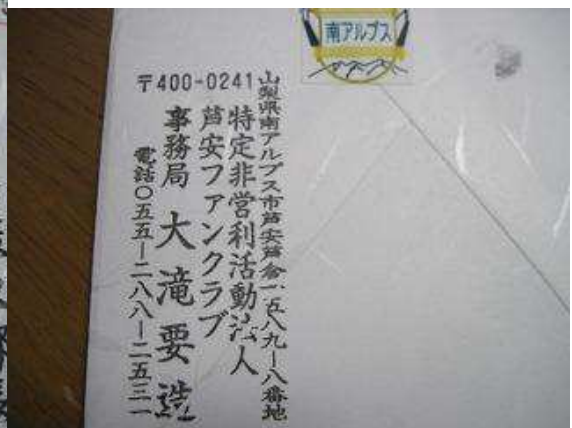 南アルプス
〒400-0241
山梨県南アルプス市芦安芦倉一五八九ー八番地
特定非営利活動法人
芦安ファンクラブ
事務局 大滝要造
電話〇五五ー二八八ー二五三一